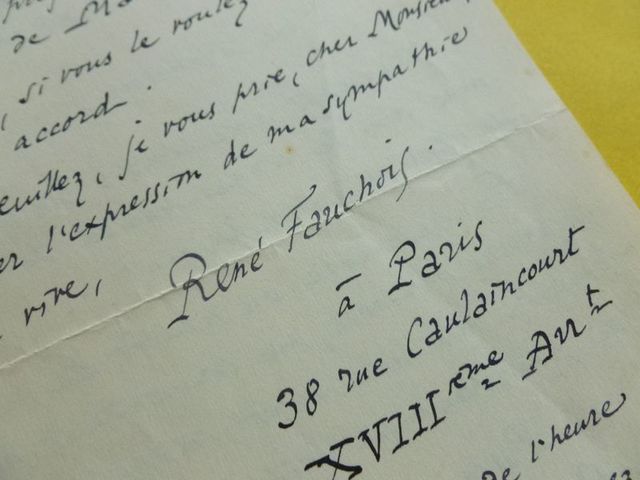 de
si vous le voulez
accord.
je vous prie, cher Monsieur,
l'expression de ma sympathie
vive,
René Fauchois.
à Paris
38 rue Caulaincourt
XVIIIème Arrt
de l'heure